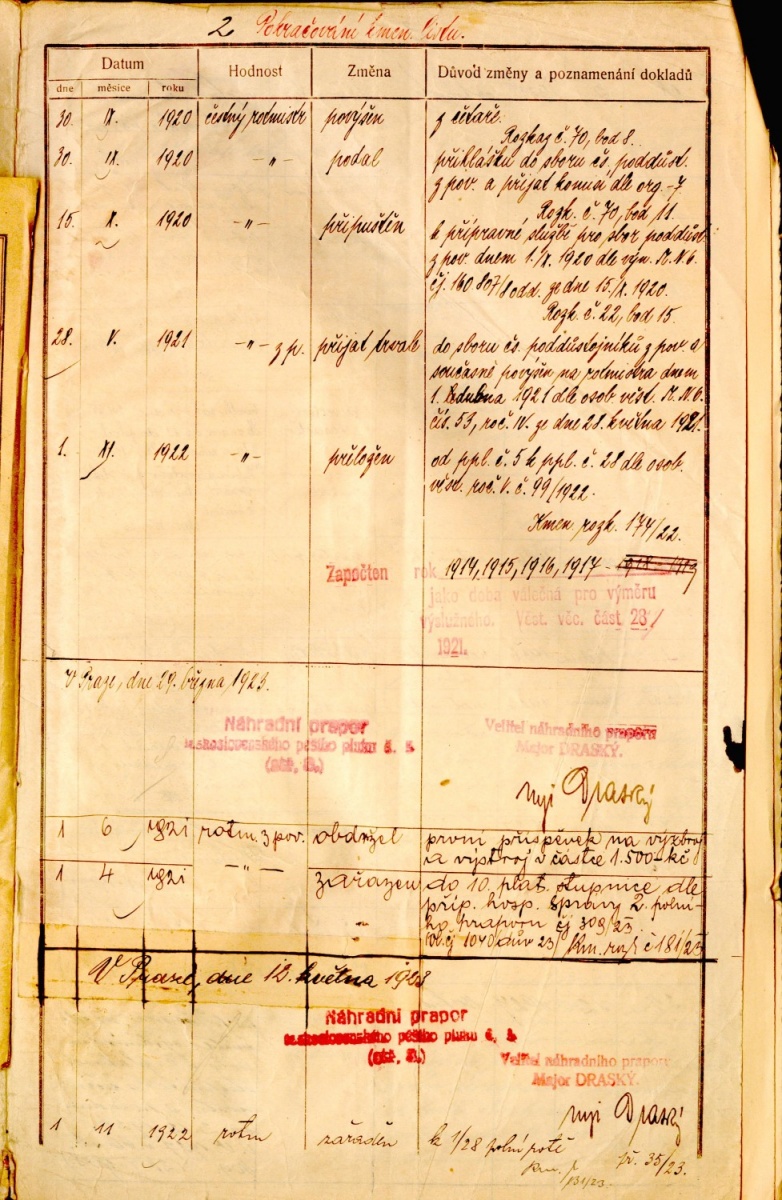 2 Pokračování kmen. listu.
Datum Hodnost Změna Důvod změny a poznamenání dokladů
dne měsíce roku
30. IX. 1920 čestný rotmistr povýšen z četaře.
Rozkaz č. 70, bod 8.
30. IX. 1920 -"- podal přihlášku do sboru čs. poddůst.
z pov. a přijat komisí dle org. -7
Rozk. č. 70, bod 11.
15. X. 1920 -"- připuštěn k přípravné službě pro sbor poddůst.
z pov. dnem 1./X. 1920 dle výn. M.N.O.
čj. 160 807/8 odd. ze dne 15./X. 1920.
Rozk. č. 22, bod 15.
28. V. 1921 -"- z p. přijat trvale do sboru čs. poddůstojníků z pov. a
současně povýšen na rotmistra dnem
1. dubna 1921 dle osob. věst. M.N.O.
čís. 53, roč. IV. ze dne 28. května 1921.
1. XI. 1922 -"- přeložen od ppl. č. 5 k ppl. č. 28 dle osob.
věst. roč. V. č. 99/1922.
Kmen. rozk. 174/22.
Započten rok 1914, 1915, 1916, 1917 - 1918 - 1919
jako doba válečná pro výměru
výslužného. Věst. věc. část 28/
1921.
V Praze, dne 29. března 1923.
Náhradní prapor
československého pěšího pluku č. 5
Velitel náhradního praporu
Major DRASKÝ.
mjr Draský
1 6 1921 rotm. z pov. obdržel první příspěvek na výzbroj
a výstroj v částce 1.500 - kč
1 4 1921 -"- zařazen do 10. plat. stupnice dle
příp. hosp. správy 2. polní-
ho praporu čj 309/23
čj 1040 dův 23/ Km. rozk č 181/23
V Praze, dne 12. května 1923
Náhradní prapor
československého pěšího pluku č. 5
Velitel náhradního praporu
Major DRASKÝ.
mjr Draský
1 11 1922 rotm zařaděn k 1/28 polní rotě
př. 35/23.